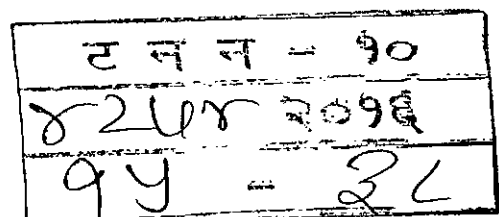 ट न न - १०
४२५४ २०१६
१५ - ३८